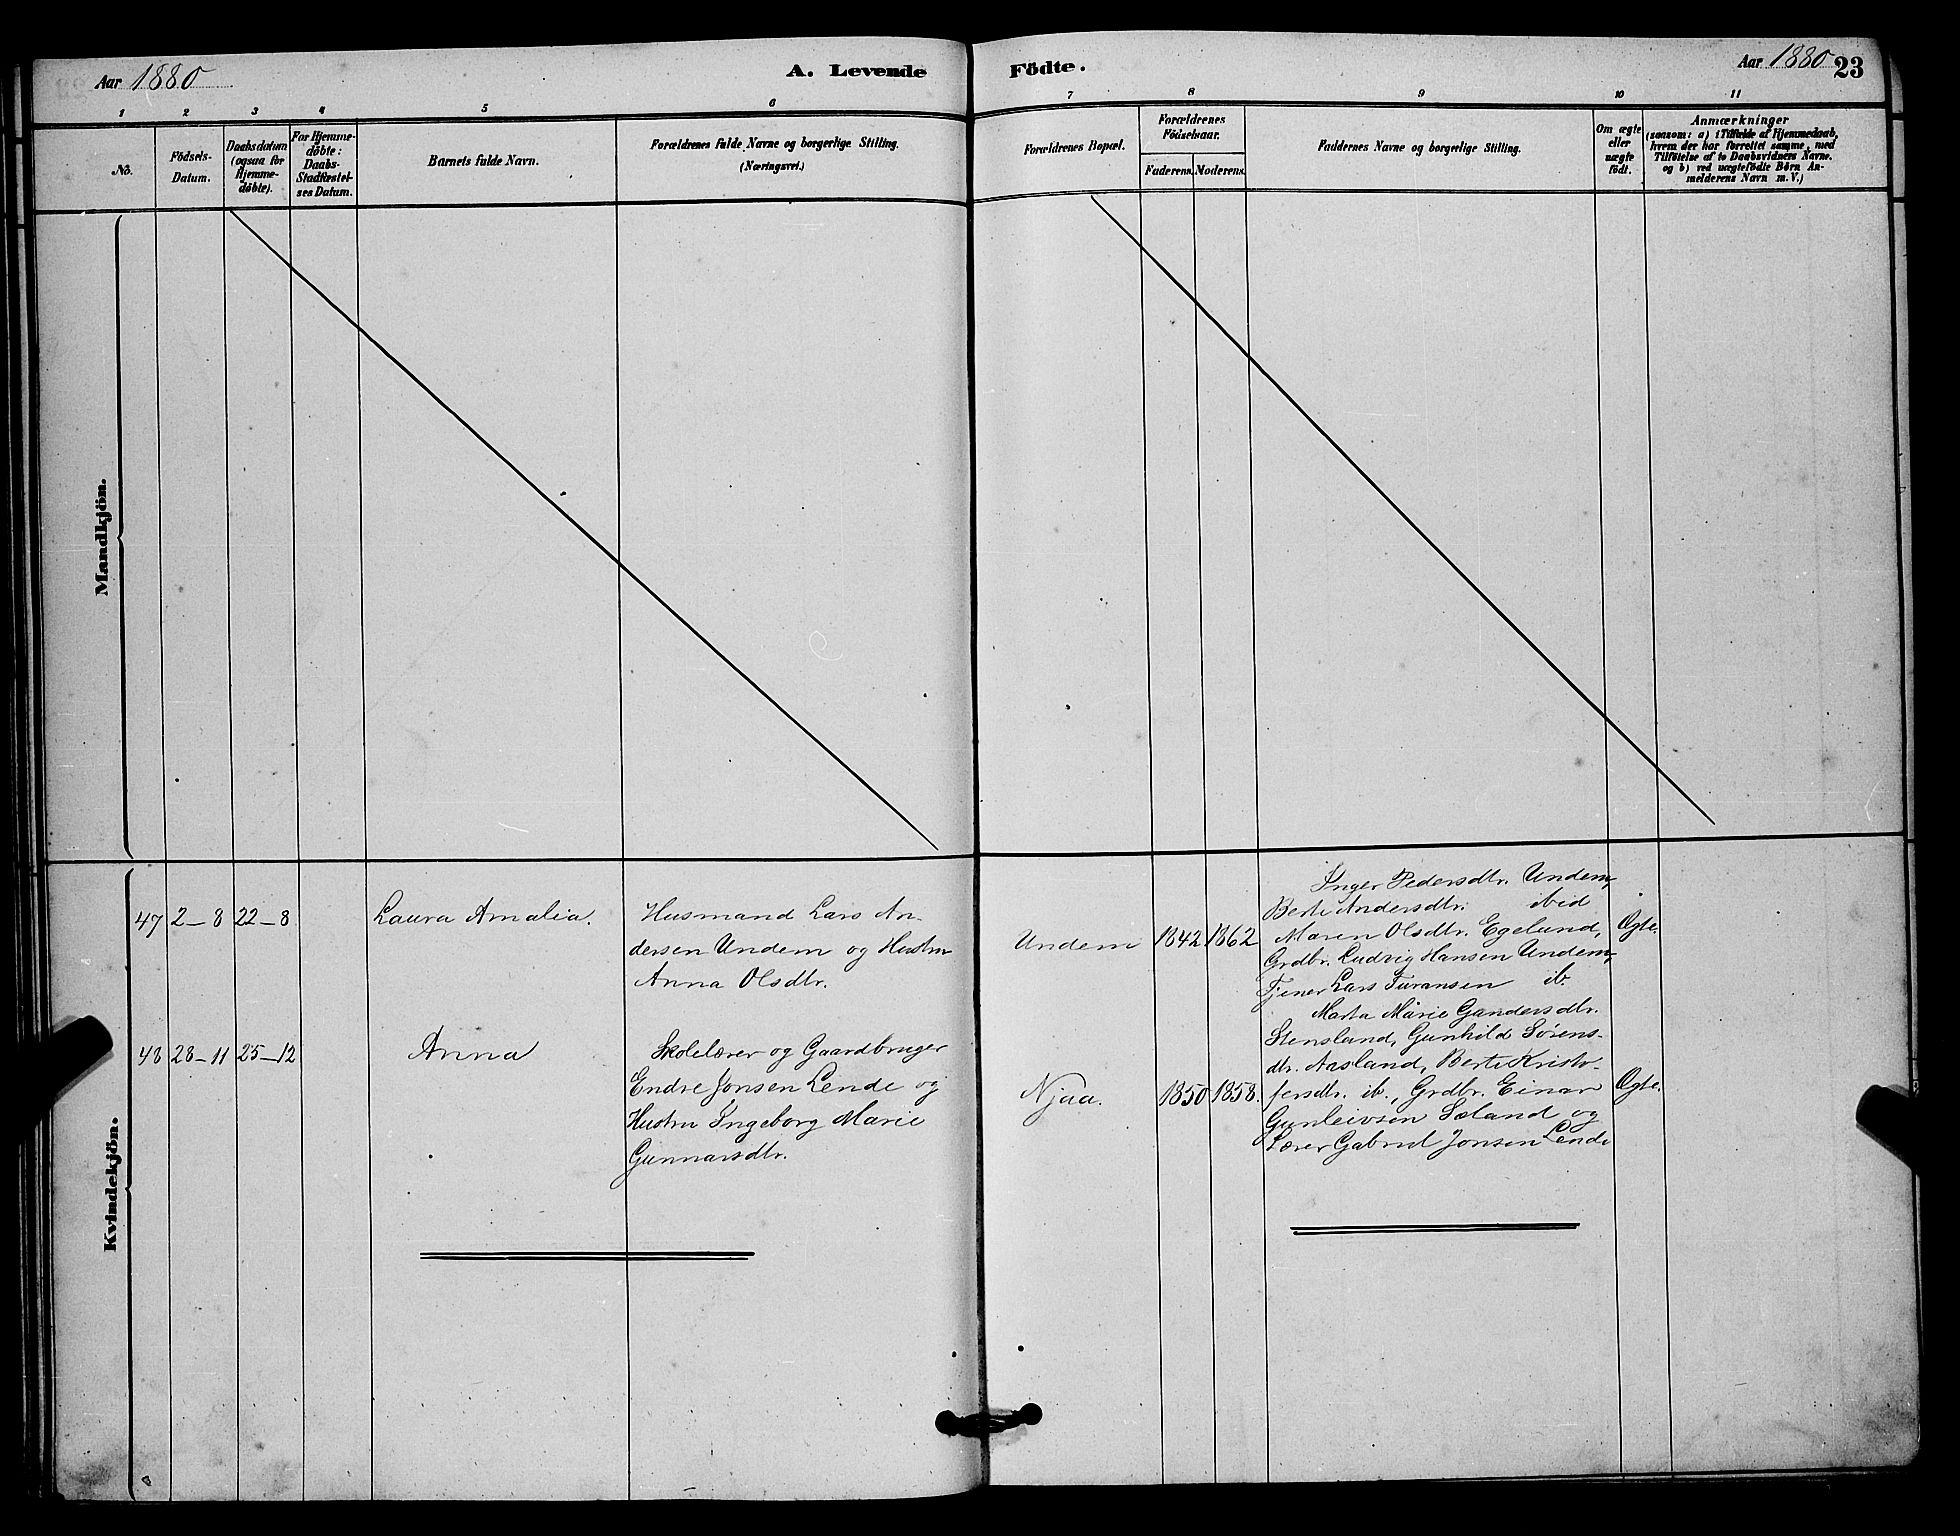 Aar 1880
A. Levende
Födte.
Aar 1880
23
1 2 3 4 5 6 7 8 9 10 11
No.
Födsels-
Datum.
Daabsdatum
(ogsaa for
Hjemme-
döbte).
For Hjemme-
döbte:
Daabs-
Stadfæstel-
ses Datum.
Barnets fulde Navn.
Forældrenes fulde Navne og borgerlige Stilling.
(Næringsvei.)
Forældrenes Bopæl.
Forældrenes
Födselsaar.
Faderens. Moderens.
Faddernes Navne og borgerlige Stilling.
Om ægte
eller
uægte
födt.
Anmærkninger
(saasom: a) i Tilfælde af Hjemmedaab,
hvem der har forrettet samme, med
Tilföielse af to Daabsvidners Navne.
og b) ved uægtefödte Börn An-
melderens Navn m. V.)
Mandkjön.
Kvindekjön.
47 2-8 22-8
Laura Amalia.
Husmand Lars An-
dersen Undem og Hustru
Anna Olsdtr.
Undem
1842. 1862
Inger Pedersdtr. Undem,
Berte Andersdtr. ibid
Maren Olsdtr. Egelund,
Grdbr. Ludvig Hansen Undem,
Tjener Lars ib.
Ægte.
48 28-11 25-12
Anna
Skolelærer og Gaardbruger
Endre Jonsen Lende og
Hustru Ingeborg Marie
Gunnarsdtr.
Njaa.
1850 1858.
Marta Marie Gandersdtr.
Stensland, Gunhild Sörens-
dtr. Aasland, Berte Kristo-
fersdtr. ib., Grdbr. Einar
Gunleivsen Sæland og
Lærer Gabriel Jonsen Lende
Ægte.